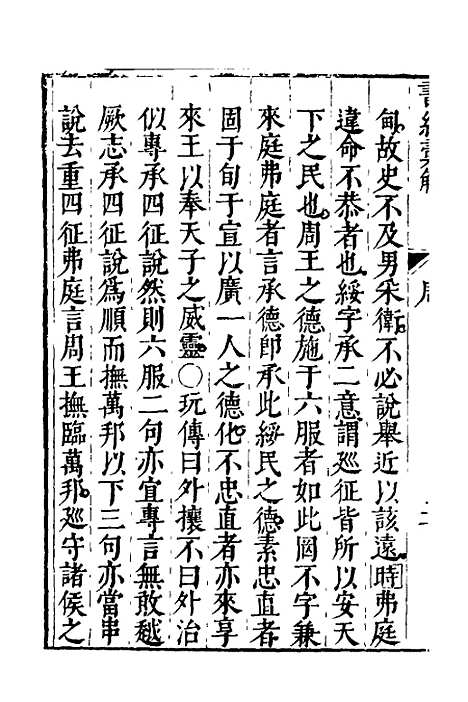 甸故史不及男采衛不必說舉近以該遠時弗庭
違命不恭者也綏字承二意謂廵征皆所以安天
下之民也周王之德施于六服者如此罔不字兼
來庭弗庭者言承德卽承此綏民之德素忠直者
固于旬于宣以廣一人之德化不忠直者亦來享
來王以奉天子之威靈○玩傳曰外攘不曰外治
似專承四征說然則六服二句亦宜專言無敢越
厥志承四征說爲順而撫萬邦以下三句亦當串
說去重四征弗庭言周王撫臨萬邦廵守諸侯之